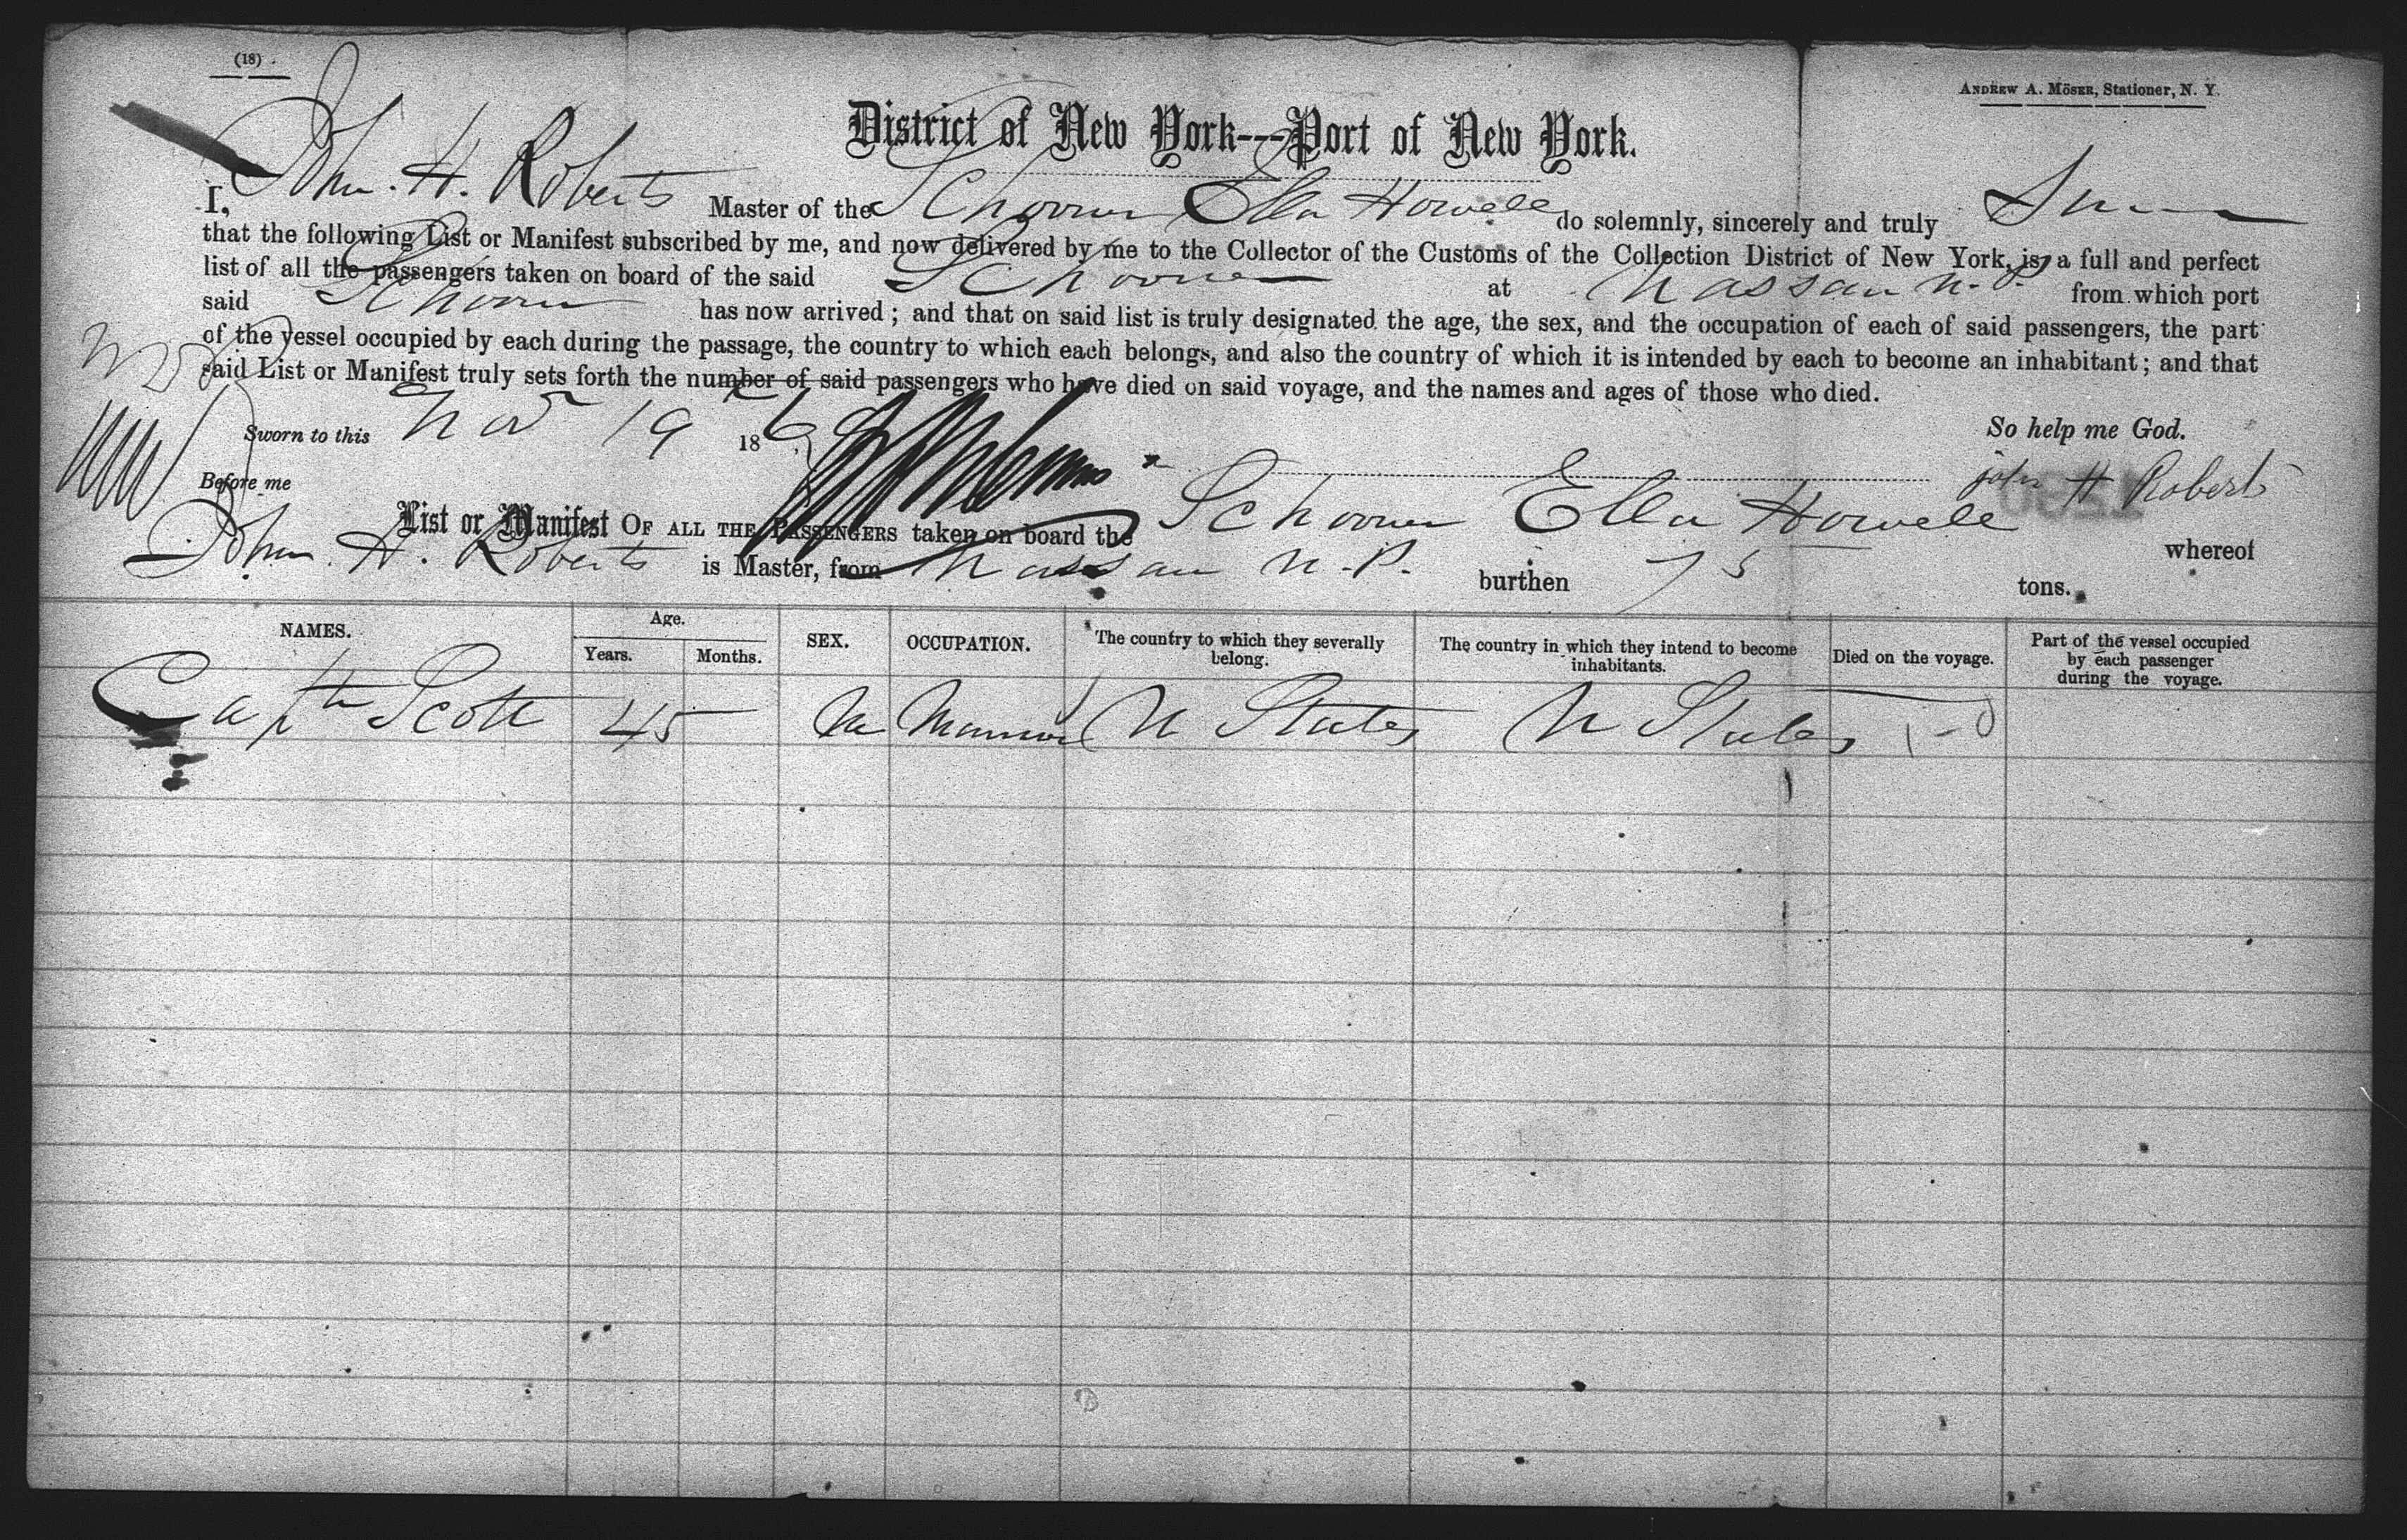 (18)
ANDREW A. MÖSER, Stationer, N. Y.
District of New York---Port of New York.
I, John. H. Roberts Master of the Schooner Ella Howell do solemnly, sincerely and truly
that the following List or Manifest subscribed by me, and now delivered by me to the Collector of the Customs of the Collection District of New York, is a full and perfect
list of all the passengers taken on board of the said Schooner at Nassau N. P. from which port
said Schooner has now arrived; and that on said list is truly designated the age, the sex, and the occupation of each of said passengers, the part
of the vessel occupied by each during the passage, the country to which each belongs, and also the country of which it is intended by each to become an inhabitant; and that
said List or Manifest truly sets forth the number of said passengers who have died on said voyage, and the names and ages of those who died.
Sworn to this Nov 19 186
So help me God.
Before me
John H Roberts
List or Manifest OF ALL THE PASSENGERS taken on board the Schooner Ella Howell whereof
John. H. Roberts is Master, from Nassau N. P. burthen 75 tons.
NAMES. Age. Years. Months. SEX. OCCUPATION. The country to which they severally belong. The country in which they intend to become inhabitants. Died on the voyage. Part of the vessel occupied by each passenger during the voyage.
Capth Scott 45 M U States U States